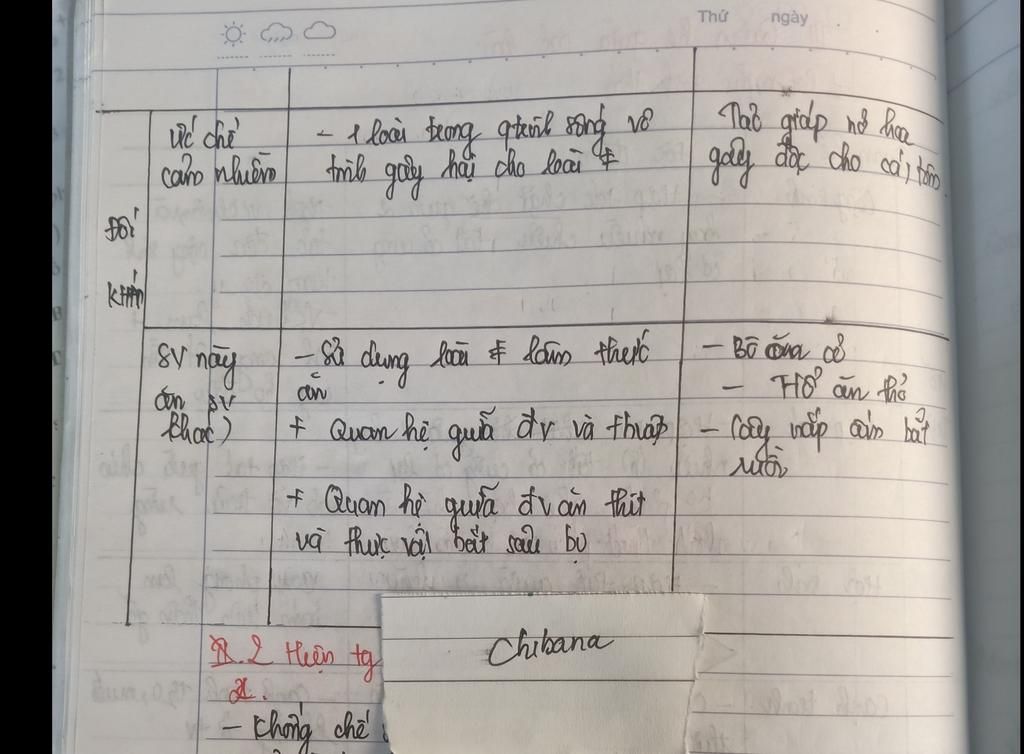 Thứ ngày
Ức chế
cảm nhiễm
- 1 loài trong qtrình sống vô
tình gây hại cho loài ≠
Tảo giáp nở hoa
gây độc cho cá, tôm
Đối
kháng
SV này
ăn SV
khác)
- Sử dụng loài ≠ làm thức
ăn
+ Quan hệ giữa đv và
+ Quan hệ giữa đv ăn thịt
và thực vật bắt sâu bọ
- Bò ăn cỏ
- Hổ ăn thỏ
- Cây nắp ấm bắt
ruồi
Chibana
2 Hiện tg
2.
- Khống chế